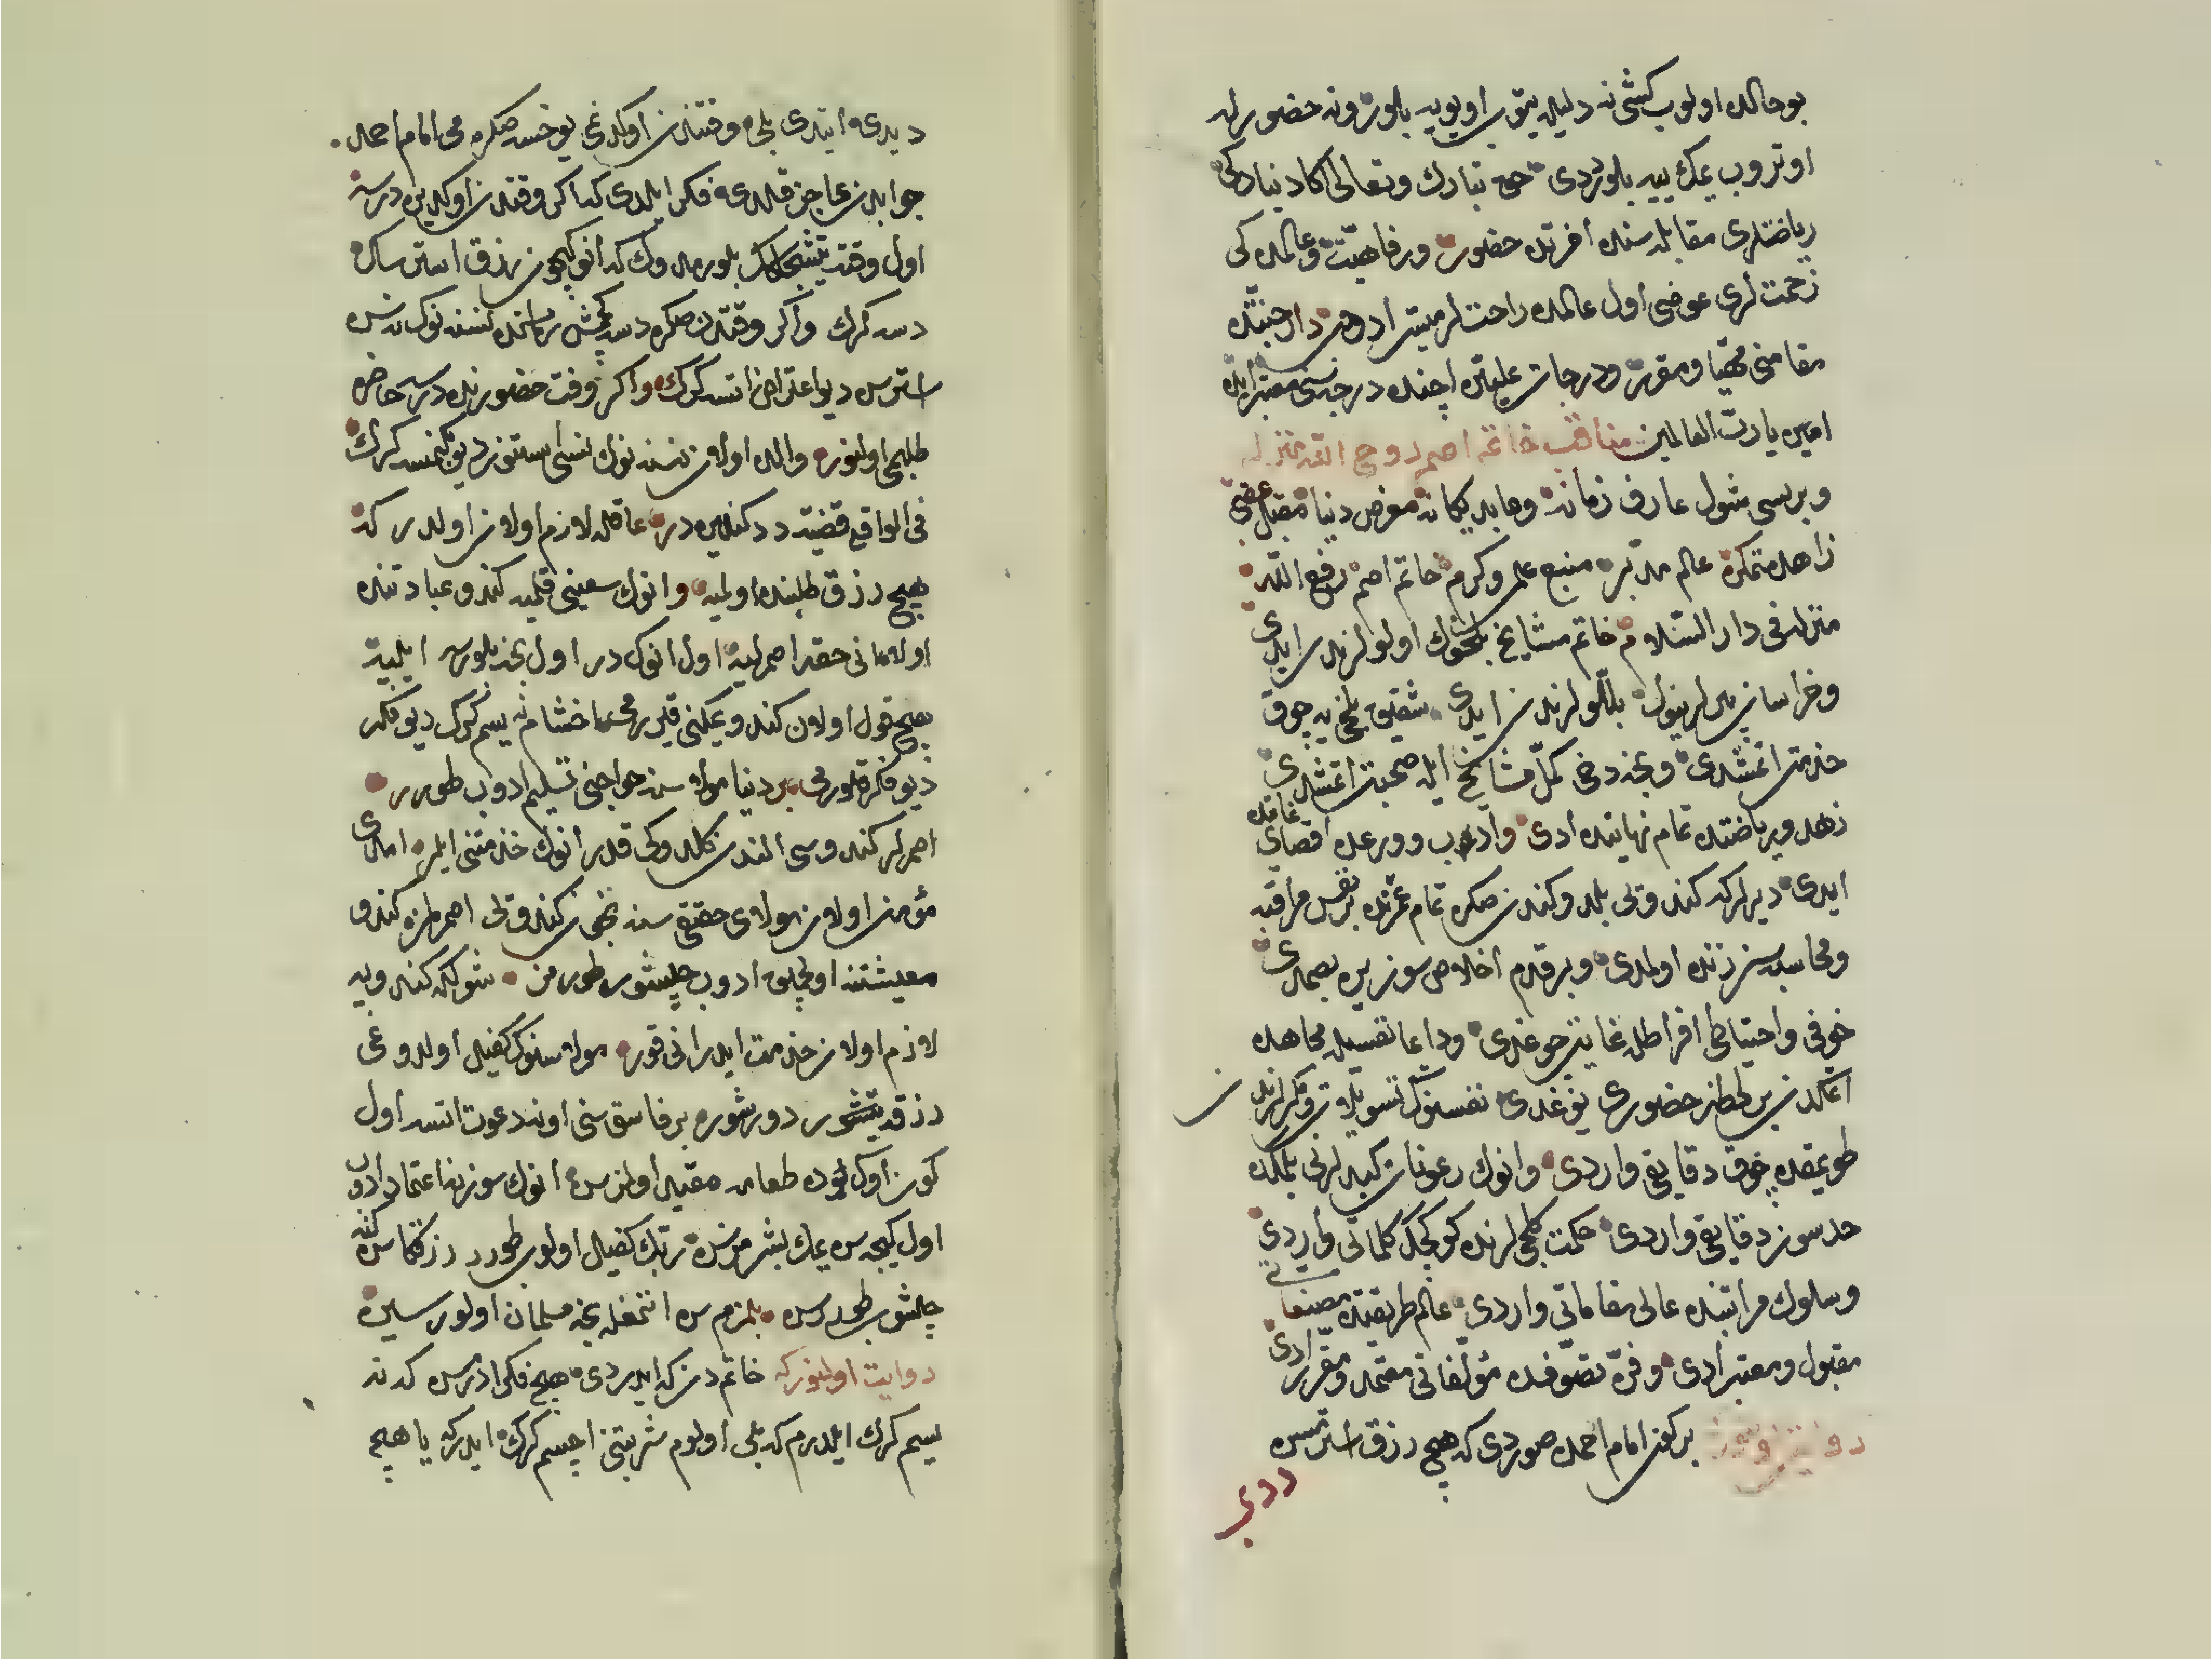 بو حالده اولوب كشی نه دلیله یتوب اویویه بلور ونه حضورله
اوتروب یمك ییه بلوردی حق تبارك وتعالی اكا دنیاده كی
ریاضتلری مقابله سنده آخرتده حضور ورفاهیت وعالمده كی
زحمتلری عوضی اول عالمده راحتلر میسر ادوب دار جنتده
مقامنی مهیا ومقرر ودرجات علیین اچنده درجه سنی معتبر ایده
امین یا رب العالمین مناقب خاتم اصم روح الله منزله
وبریسی شول عارف زمانه وعابد یكانه معرض دنیا مقبل عقبی
زاهد متمكن عالم مدبر منبع علم وكرم خاتم اصم رفع الله
منزله فی دار السلام خاتم مشایخ بلخوك اولولرندن ایدی
وخراسان پیرلرینوك بللولرندن ایدی شقیق بلخی یه چوق
خذمت اتمشدی ونجه دخی كمل مشایخ ایله صحبت اتمشدی
زهد وریاضتده تمام نهایتده ادی وادب وورعده اقصای غایتده
ایدی دیرلر كه كندوتی بلدوكندن صكره تمام عمرنده بر نفس مراقبه
ومحاسبه سز زنده اولمدی وبر قدم اخلاص سوز یره بصمدی
خوفی واحتیاطی افراطله غایت چوغدی ودایما نفسیله مجاهده
اتمكدن بر لحظه حضوری یوغدی نفسنوك تسویلات ومكرلرندن
طویمقده چوق دقایقی واردی وانوك رعونات كیدلرنی بلمكده
حدسوز دقایقی واردی حكمت كلمه لرنده كوكچك كلماتی واردی
وسلوك مراتبنده عالی مقاماتی واردی عالم طریقتده مصنفاتی
مقبول ومعتبر ادی وفن تصوفده مؤلفاتی معتمد ومقرر ادی
روایت اولنور بر كون امام احمد صوردی كه هیچ رزق استرمیسن
دیدی
دیدی ایتدی بلی وقتندن اوكدنمی یوخسه صكره می امام احمد
جوابدن عاجز قلدی فكر ایلدی كه اكر وقتندن اوكدین درسه
اول وقته یتشجكك بلورمیدوك كه انوكچون رزق استرسك
دسه كرك واكر وقتدن صكره دسه كچمش زمانده نسنه نوك نه سن
استرسن دیو اعتراض اتسه كرك واكر وقت حضورنده درسه حاضره
طلبمی اولنور والده اولان نسنه نوك نسی استنور دیو كنمسه كرك
فی الواقع قضیه ددكندین در عاقله لازم اولان اولدر كه
هیچ رزق طلبنده اولمیه وانوك سعینی قلمیه كندو عبادتنده
اولا انی حقه اصمرلیه اول انوك در اول نجه بلورسه ایلیه
هیچ قول اولان كندو یمكنی قیورمی اخشام نه یسم كرك دیو فكر
دیو فكر قلورمی بر دنیا مولاسنه حوایجنی تسلیم ادوب طورر
اصمرلر كندوسی الندن كلدوكی قدر انوك خذمتنی ایلر امدی
مؤمن اولان مولای حقیقی سنه نیچون كندوتی اصمرلمز كندو
معیشتنه اولچیق ادوب چلیشور طورمز شول كه كندویه
لازم اولان خذمت ایدر انی قور مولاسنوك كفیل اولدوغی
رزقه یتشور دورشور بر فاسق سنی اونه دعوت اتسه اول
كون اوكوده طعامه مقید اولمزسن انوك سوزینه اعتماد ادوب
اول كیجه سن یمك بشرمزسن ربك كفیل اولوب طورر رزقكا سن كنه
چلشوب طوررسن بلمزم سن انتمغله نجه مسلمان اولورسین
روایت اولنور كه خاتم دن كه ایدردی هیچ فكر ادرسن كه نه
یسم كرك ایلدرم كه بلی اولوم شربتنی اچسم كرك ایدر كه یا هیچ